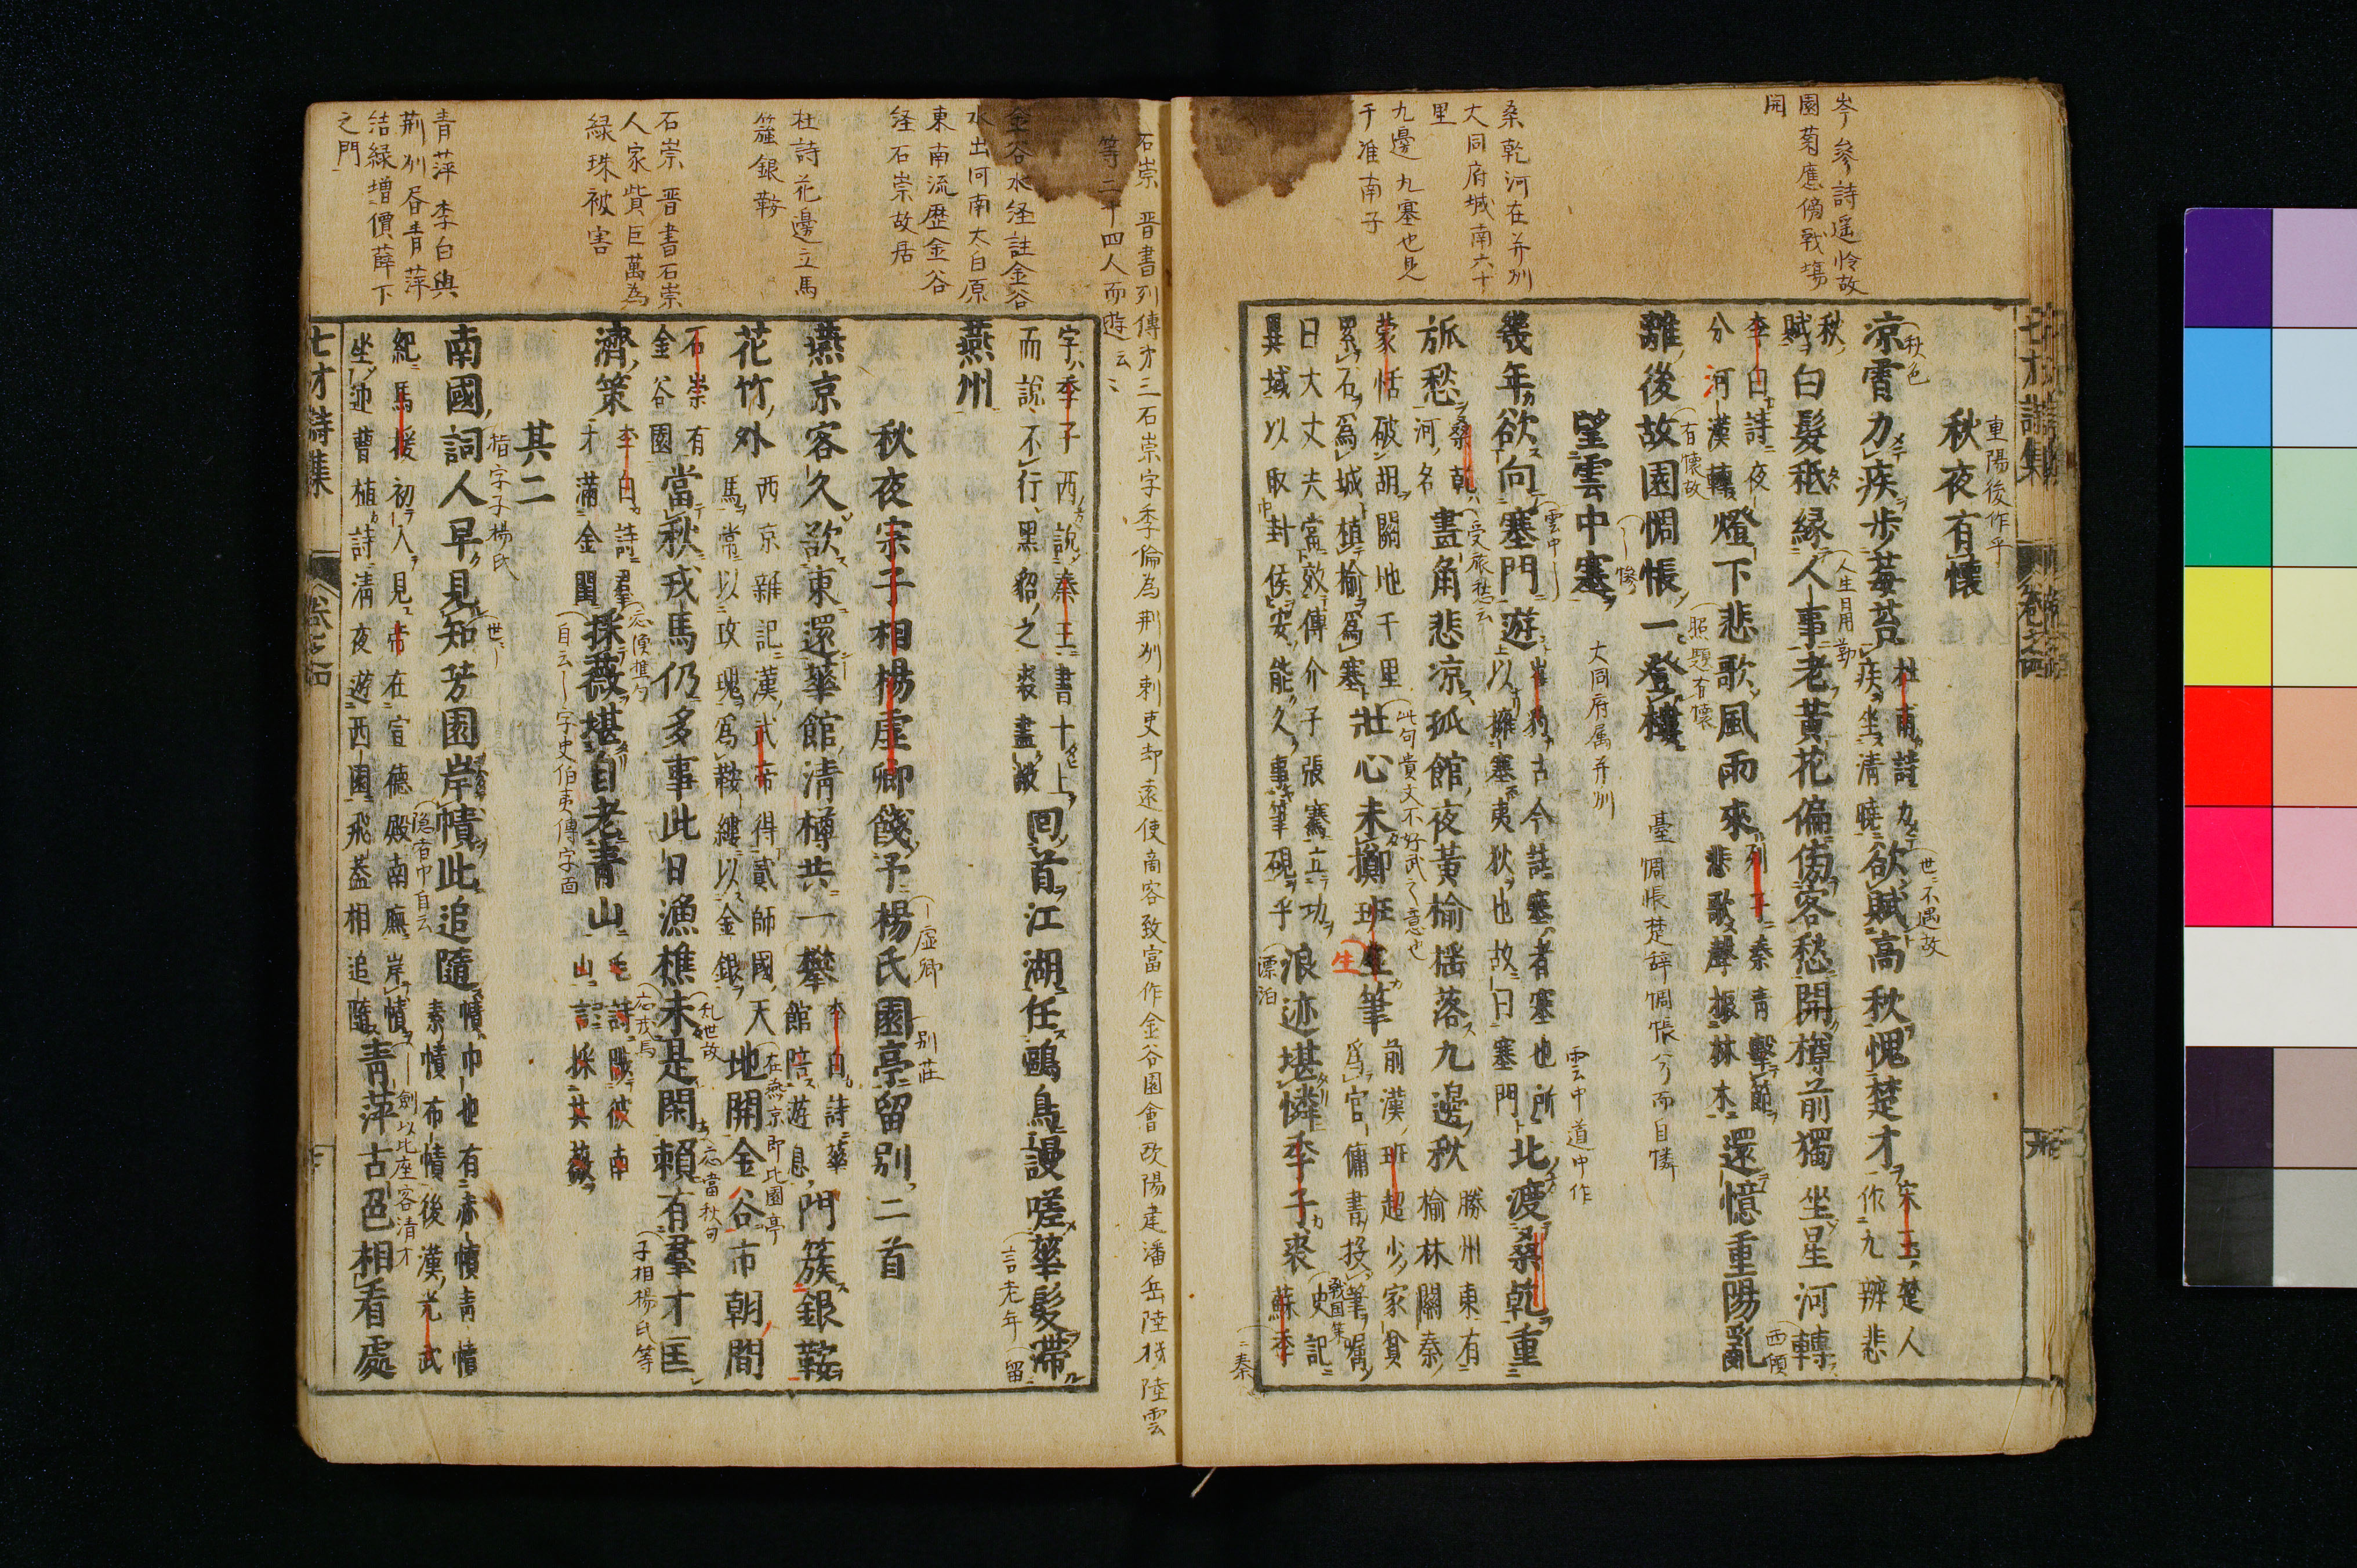 岑參詩遥怜故
園菊應傍戰場
開
桑乾河在并州
大同府城南六十
里
九邊九塞也見
于淮南子
秋夜有懷
重陽後作乎
凉霄力疾步莓苔
杜甫詩力
疾坐清曉
欲賦高秋愧楚才
宋玉楚人
作九辨悲
秋
賦
白髮秪緣人事老黃花偏傍客愁開樽前獨坐星河轉
李白詩夜
分河漢轉
燈下悲歌風雨來
列子秦青擊節
悲歌聲振林木
還憶重陽亂
離後故園惆悵一登樓
臺惆悵楚辞惆悵兮而自憐
望雲中塞
大同府属并州
雲中道中作
幾年欲向塞門遊
崔豹古今註塞者塞也所
以擁塞夷狄也故曰塞門
北渡桑乾重
旅愁
桑乾
河名
畫角悲凉孤館夜黃榆揺落九邊秋
勝州東有
榆林關秦
蒙恬破胡闢地千里
累石爲城植榆爲塞
壯心未擲班生筆
前漢班超少家貧
爲官傭書投筆嘱
日大丈夫當效傅介子張騫立功
異域以取封侯安能久事筆硯乎
浪迹堪憐季子裘
史記
蘇季
生
漂泊
此句賞文不好武之意也
石崇 晋書列傳才三石崇字季倫為荆州刺吏却遠使商客致富作金谷園會欧陽建潘岳陸机陸雲
等二十四人而遊云々
金谷水经註金谷
水出河南太白原
東南流歷金谷
経石崇故居
杜詩花邊立馬
簇銀鞍
石崇 晋書石崇
人家貲巨萬為
緑珠被害
青萍 李白與
荆州㫺青萍
結緑增價薛下
之門
字季子西說秦王書十上
而說不行黑貂之裘盡敝
回首江湖任鷗鳥謾嗟華髮滯
燕州
秋夜宗子相楊虛卿餞予楊氏園亭留別二首
燕京客久欲東還華館清樽共一攀
李白詩華
館陪遊息
門簇銀鞍
花竹外
西京雜記漢武帝得貳師國天
馬常以玫瑰爲鞍縷以金銀
地開金谷市朝間
石崇有
金谷園
當秋戎馬仍多事此日漁樵未是閑賴有羣才匡
濟策
李白詩羣
才滿金閨
採薇堪自老青山
毛詩陟彼南
山言採其薇
其二
南國詞人早見知芳園岸幘此追隨
幘巾也有赤幘青幘
素幘布幘後漢光武
紀馬援初入見帝在宣德殿南廡岸幘
坐迎曹植詩清夜遊西園飛蓋相追隨
青萍古色相看處
七才詩集
卷之四